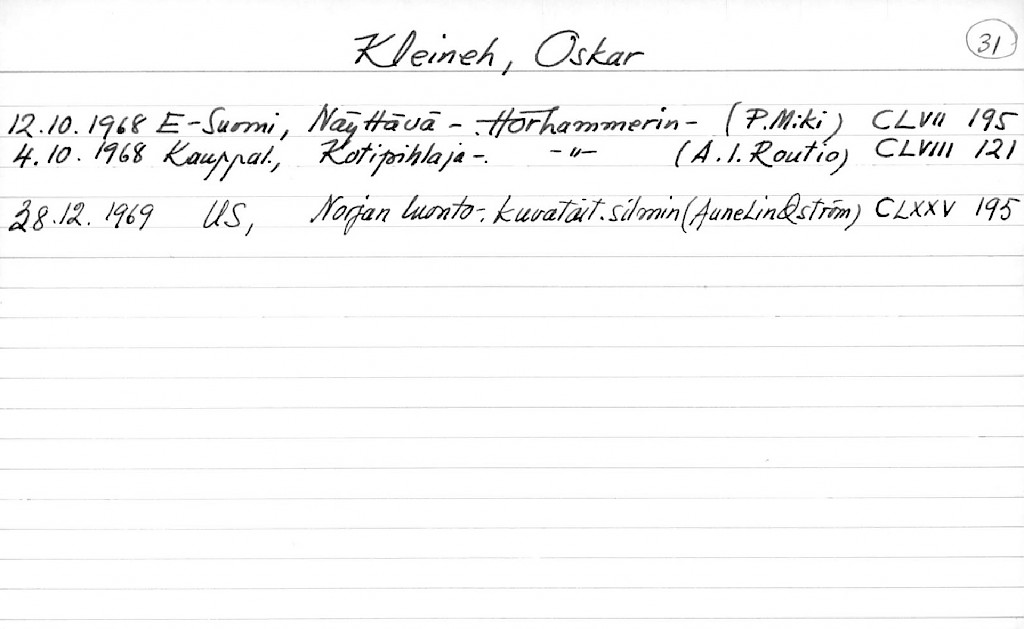 Kleineh, Oskar
31
12.10.1968 E-Suomi, Näyttävä - Hörhammerin - (P.Miki) CLVII 195
4.10.1968 Kauppal., Kotipihlaja -. -"- (A.I.Routio) CLVIII 121
28.12.1969 US, Norjan luonto -. kuvatait. silmin (Aune Lindström) CLXXV 195